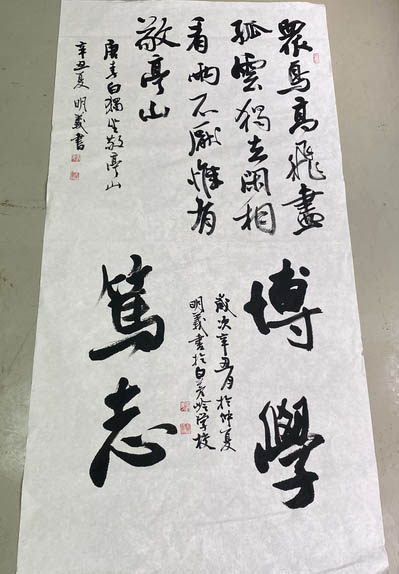 眾鳥高飛盡
孤雲獨去閑相
看兩不厭惟有
敬亭山
唐李白獨坐敬亭山
辛丑夏 明義書
博學
篤志
歲次辛丑月於仲夏
明義書於白芒岭学校